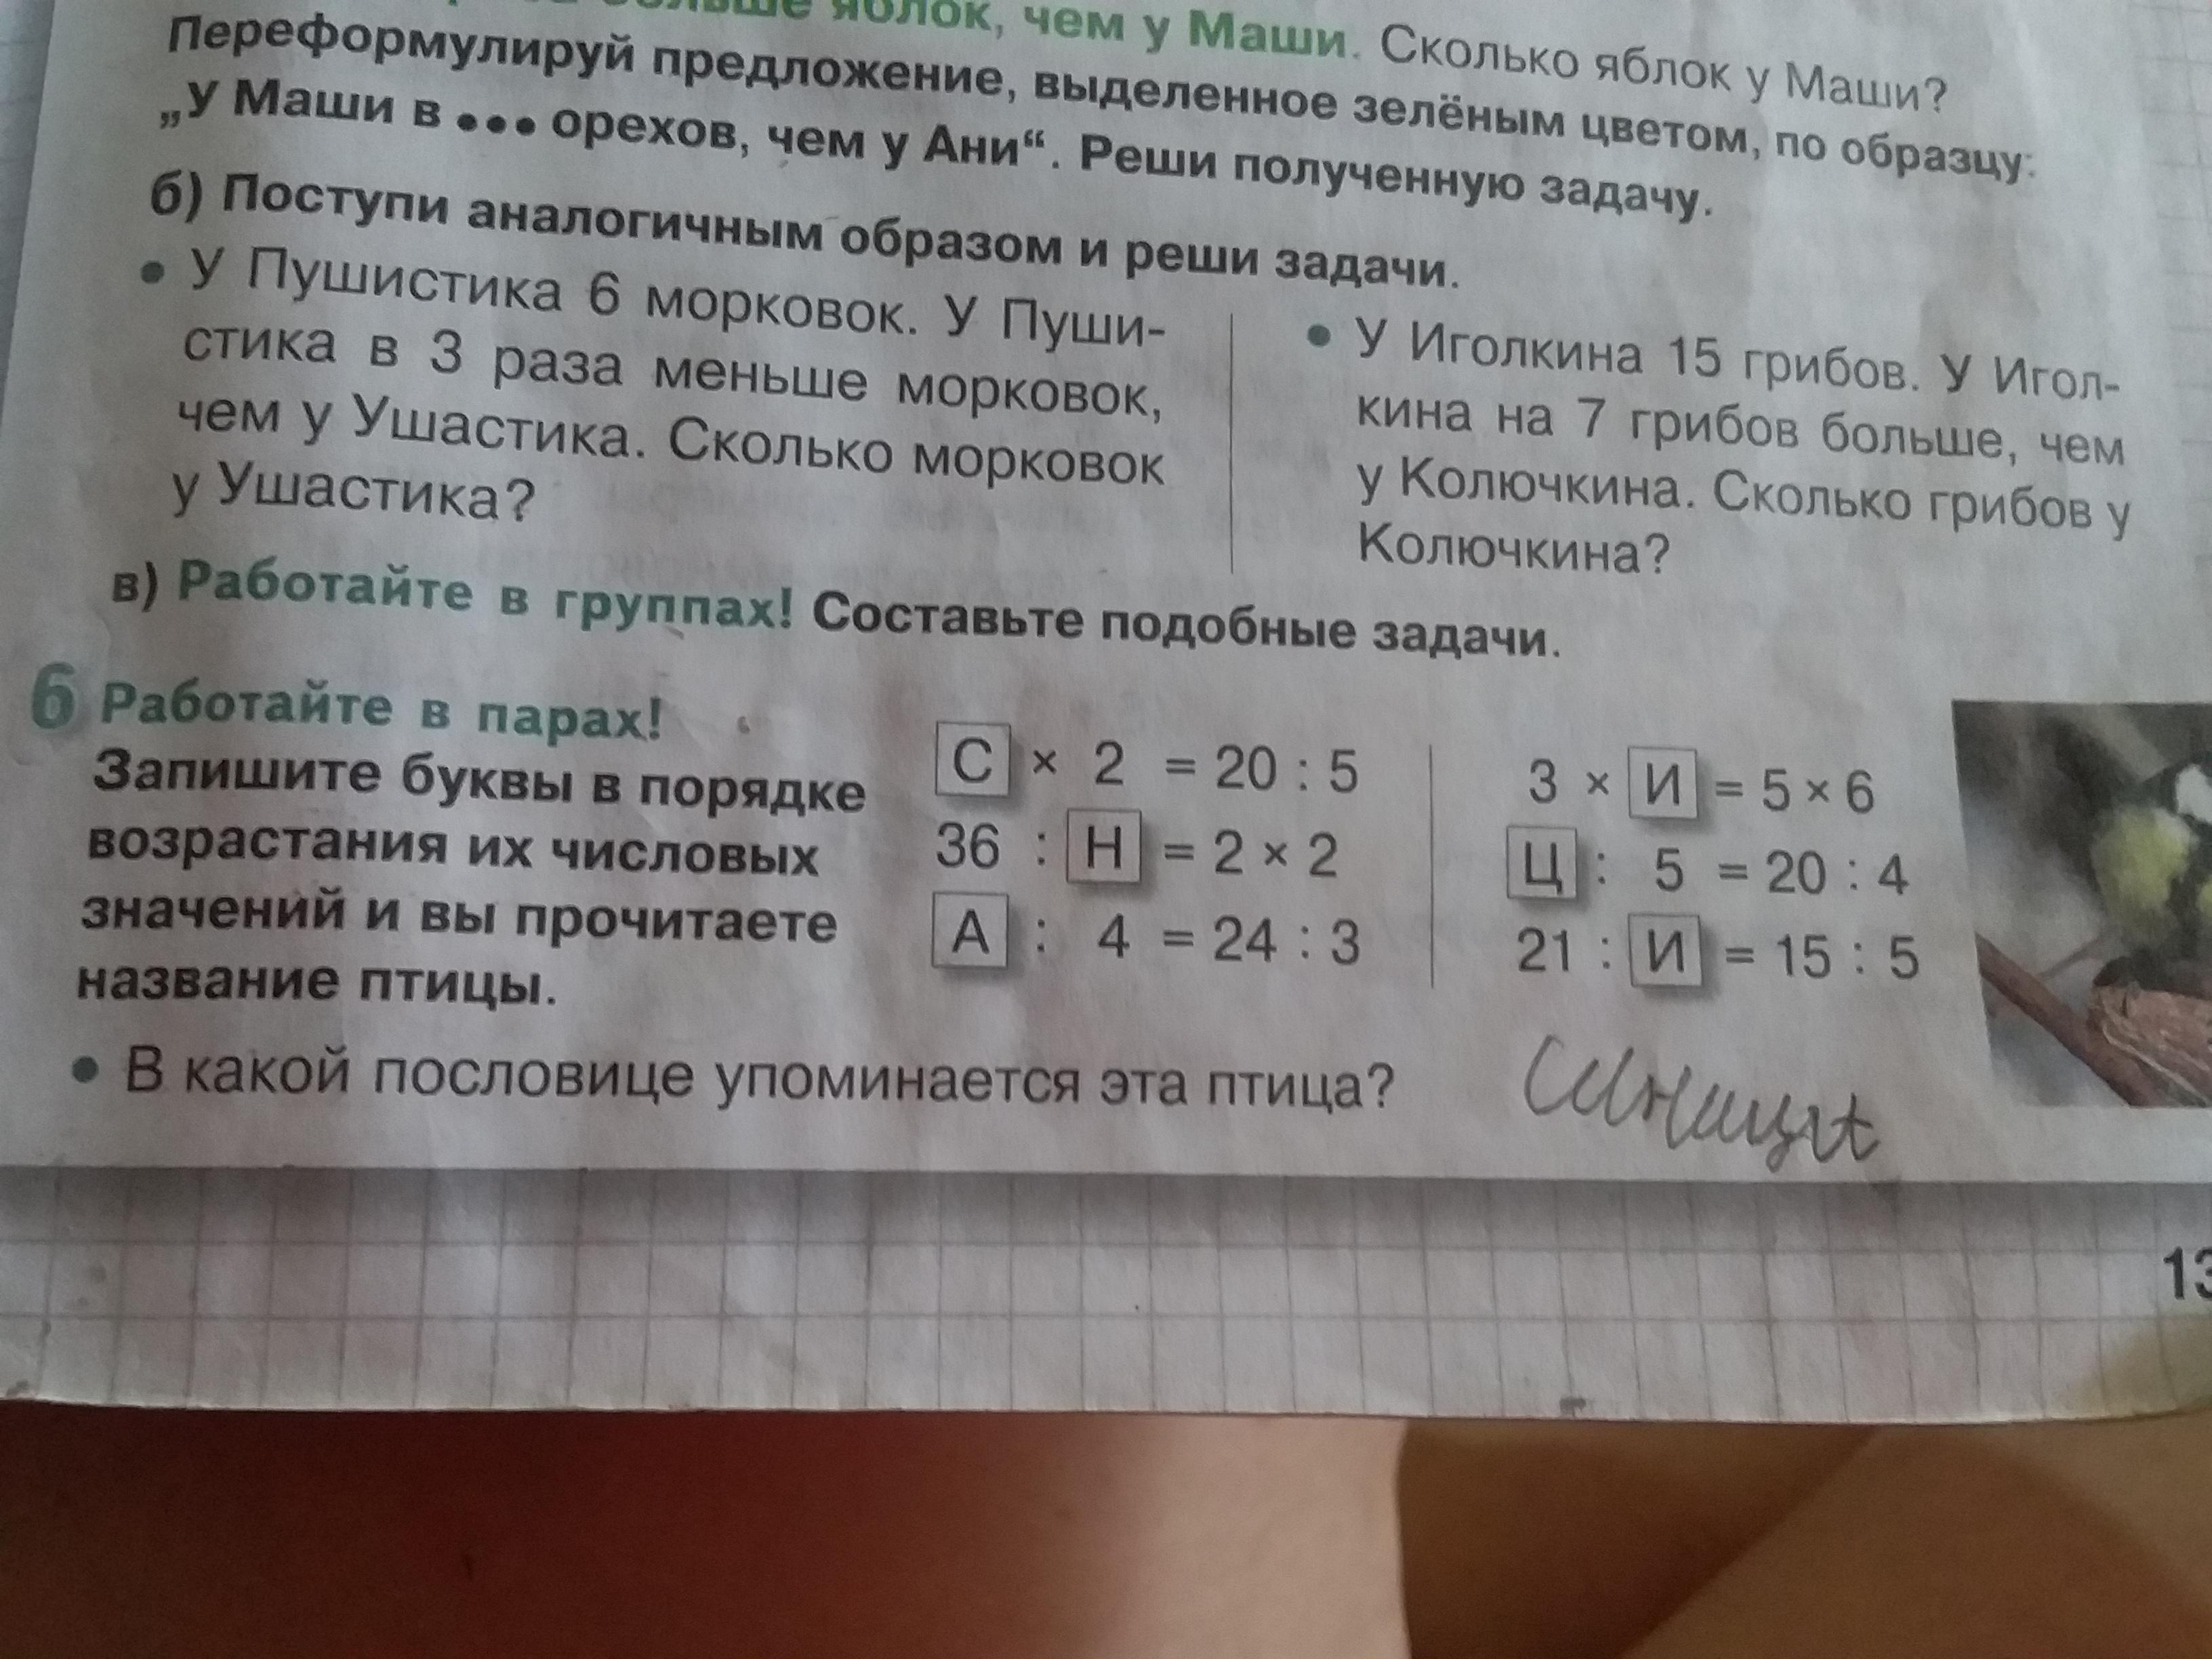 больше яблок, чем у Маши. Сколько яблок у Маши?
Переформулируй предложение, выделенное зелёным цветом, по образцу:
„У Маши в ••• орехов, чем у Ани“. Реши полученную задачу.
б) Поступи аналогичным образом и реши задачи.
• У Пушистика 6 морковок. У Пуши-
стика в 3 раза меньше морковок,
чем у Ушастика. Сколько морковок
у Ушастика?
• У Иголкина 15 грибов. У Игол-
кина на 7 грибов больше, чем
у Колючкина. Сколько грибов у
Колючкина?
в) Работайте в группах! Составьте подобные задачи.
6 Работайте в парах!
Запишите буквы в порядке
возрастания их числовых
значений и вы прочитаете
название птицы.
С × 2 = 20 : 5
36 : Н = 2 × 2
А : 4 = 24 : 3
3 × И = 5 × 6
Ц : 5 = 20 : 4
21 : И = 15 : 5
• В какой пословице упоминается эта птица?
синица
13